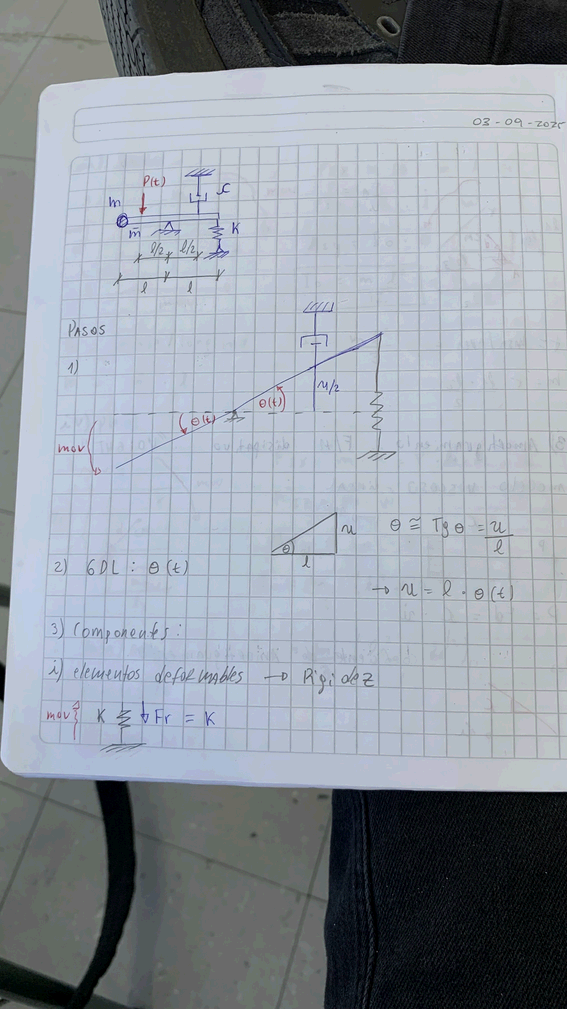 03-09-2025
P(t)
C
m
m̄
K
l/2 l/2
l l
PASOS
1)
u/2
θ(t) θ(t)
mov
u
θ
l
θ ≅ Tg θ = u/l
2) GDL : θ(t)
→ u = l · θ(t)
3) Componentes:
i) elementos deformables → Rigidez
mov K Fr = K